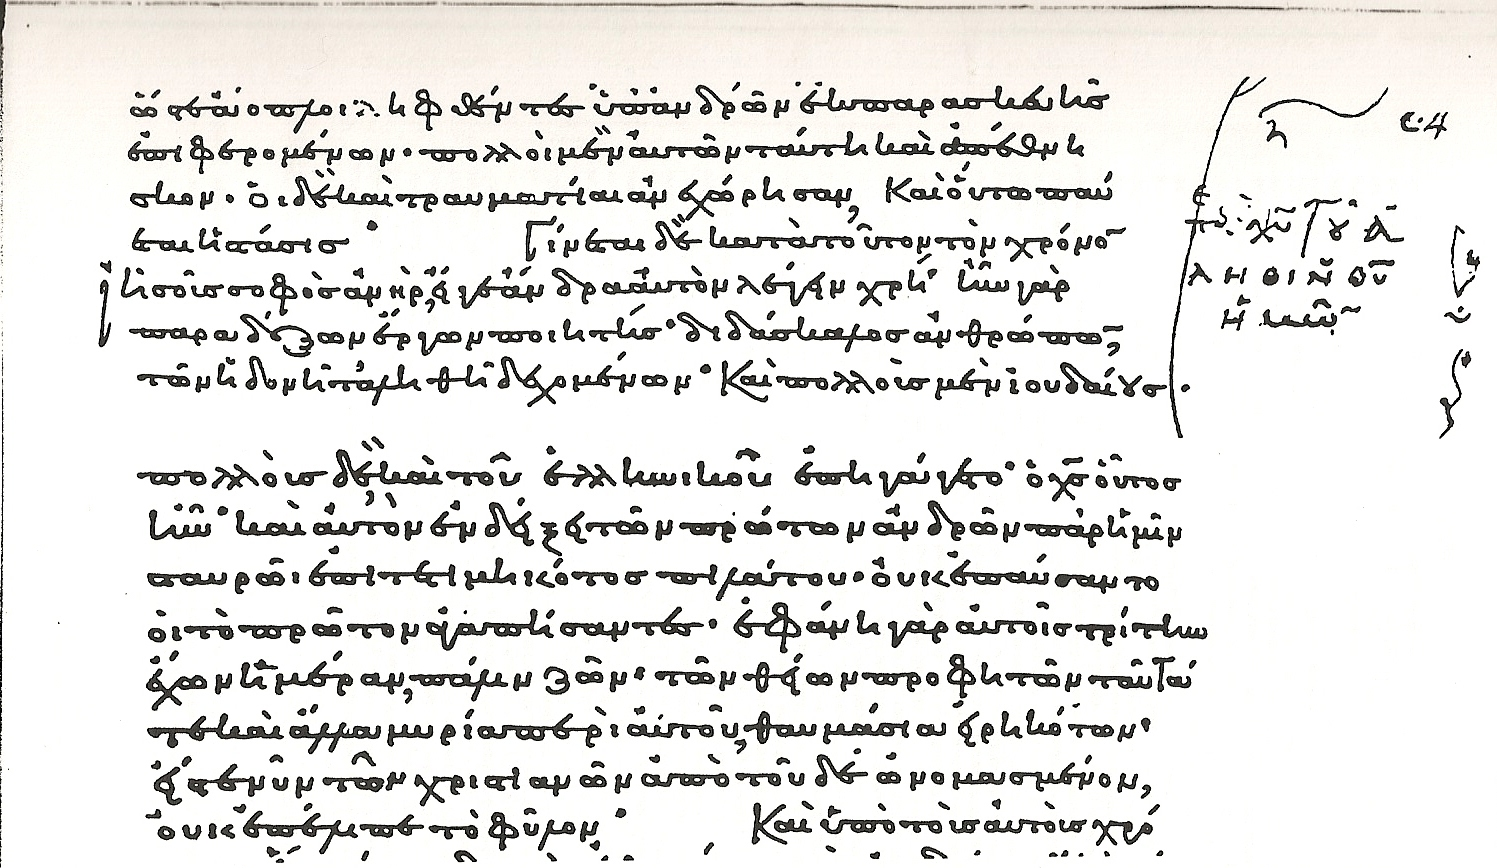 ὥστε ἄοπλοι ληφθέντες ὑπ' ἀνδρῶν ἐκ παρασκευῆς
ἐπιφερομένων· πολλοὶ μὲν αὐτῶν ταύτη καὶ ἀπέθνη
σκον· οἱ δὲ καὶ τραυματίαι ἀνεχώρησαν, Καὶ οὕτω παύ
εται ἡ στάσις· Γίνεται δὲ κατὰ τοῦτον τὸν χρόνο
ἰησοῦς σοφὸς ἀνὴρ, εἴγε ἄνδρα αὐτὸν λέγειν χρή· ἦν γὰρ
παραδόξων ἔργων ποιητής· διδάσκαλος ἀνθρώπω,
τῶν ἡδονῆ τἀληθῆ δεχομένων· Καὶ πολλοὺς μὲν ἰουδαίους·
πολλοὺς δὲ καὶ τοῦ ἑλληνικοῦ ἐπηγάγετο· ὁ χς οὗτος
ἦν· καὶ αὐτὸν ἐνδείξει τῶν πρώτων ἀνδρῶν παρ' ἡμῖν
σταυρῶι ἐπιτετιμηκότος πιλάτου· οὐκ ἐπαύσαντο
οἱ τὸ πρῶτον ἀγαπήσαντες· ἐφάνη γὰρ αὐτοῖς τρίτην
ἔχων ἡμέραν, πάλιν ζῶν· τῶν θείων προφητῶν ταῦτά
τε καὶ ἄλλα μυρία περὶ αὐτοῦ, θαυμάσια εἰρηκότων·
εἴς τε νῦν τῶν χριστιανῶν ἀπὸ τοῦδε ὠνομασμένον,
οὐκ ἐπέλιπε τὸ φῦλον· Καὶ ὑπὸ τοὺς αὐτοὺς χρό
χυ τοῦ ἀ
ληθινοῦ
ἡμῶν